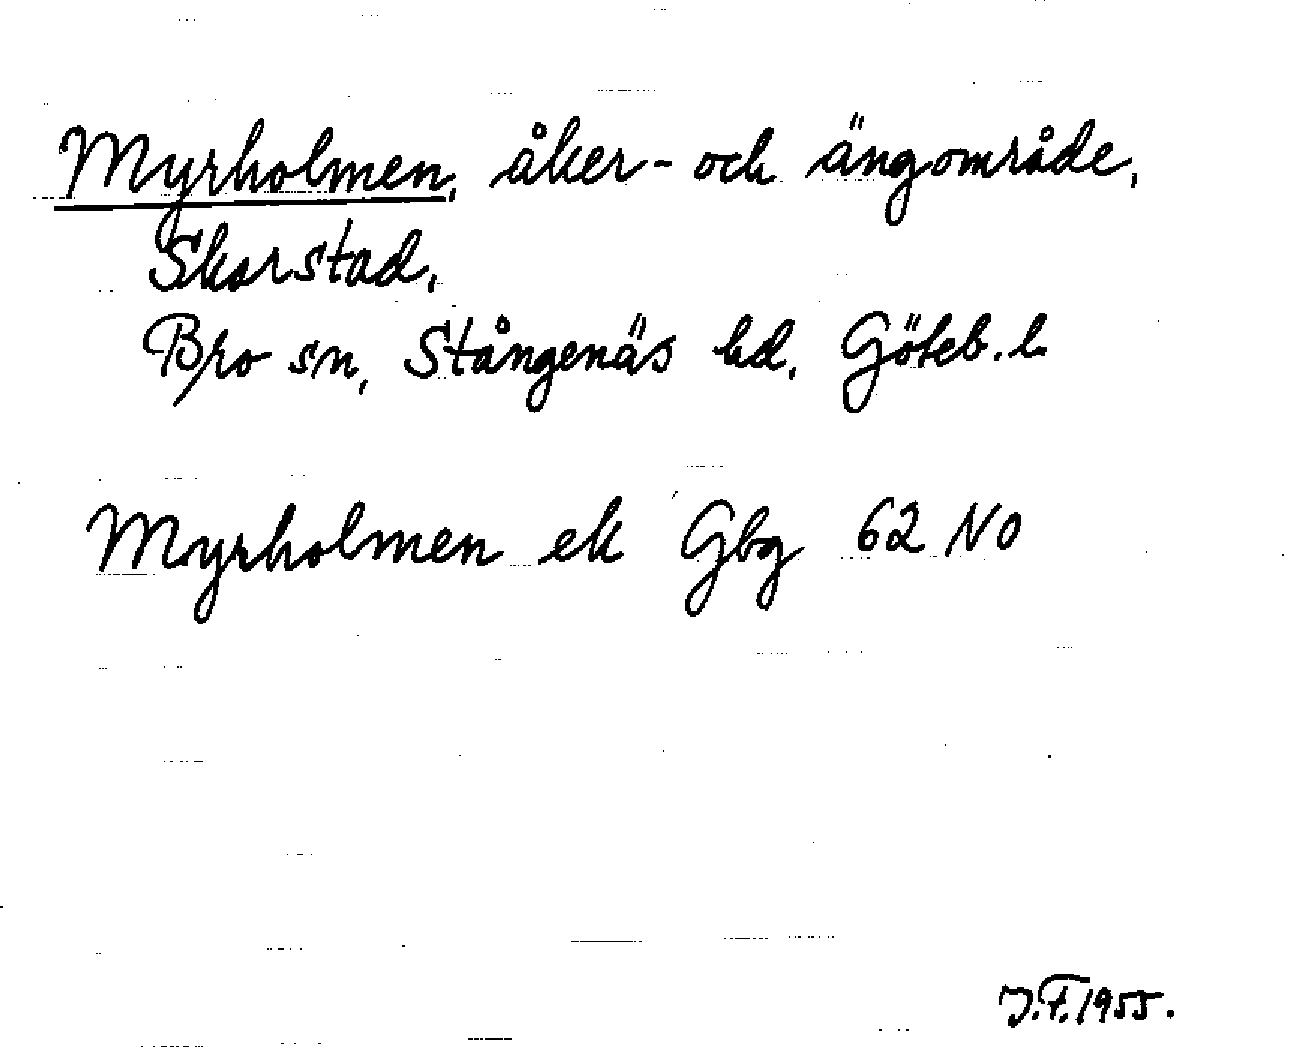 Myrholmen, åker- och ängområde,
Skarstad,
Bro sn, Stångenäs hd, Göteb. l.
Myrholmen ek Gbg 62 NO
J.F. 1955.